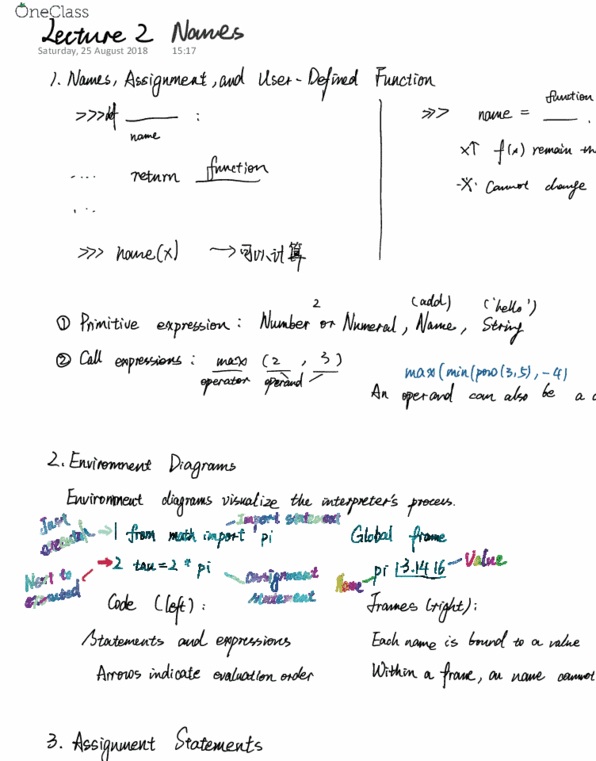 OneClass
Lecture 2 Names
Saturday, 25 August 2018 15:17
1. Names, Assignment, and User-Defined Function
>>> def ____ :
name
.... return function
...
>>> name(x) → 可以计算
function
>>> name = ____ .
x↑ f(x) remain th
Cannot change
① Primitive expression : Number or Numeral, Name, String
2 (add) ('hello')
② Call expressions : max (2 , 3)
operator operand
max(min(pow(3,5),-4)
An operand can also be a c
2. Environment Diagrams
Environment diagrams visualize the interpreter's process.
Just executed → 1 from math import pi — Import statement
Next to executed → 2 tau = 2 * pi — assignment statement
Code (left) :
Statements and expressions
Arrows indicate evaluation order
Global frame
Name — pi 3.1416 — Value
Frames (right) :
Each name is bound to a value
Within a frame, an name cannot
3. Assignment Statements